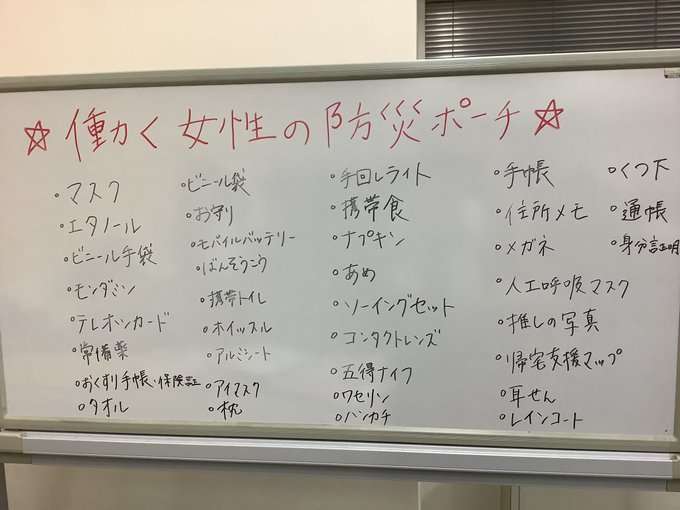 ☆働く女性の防災ポーチ☆
・マスク
・エタノール
・ビニール手袋
・モンダミン
・テレホンカード
・常備薬
・おくすり手帳・保険証
・タオル
・ビニール袋
・お守り
・モバイルバッテリー
・ばんそうこう
・携帯トイレ
・ホイッスル
・アルミシート
・アイマスク
・枕
・手回しライト
・携帯食
・ナプキン
・あめ
・ソーイングセット
・コンタクトレンズ
・五得ナイフ
・ワセリン
・ハンカチ
・手帳
・住所メモ
・メガネ
・人工呼吸マスク
・推しの写真
・帰宅支援マップ
・耳せん
・レインコート
・くつ下
・通帳
・身分証明